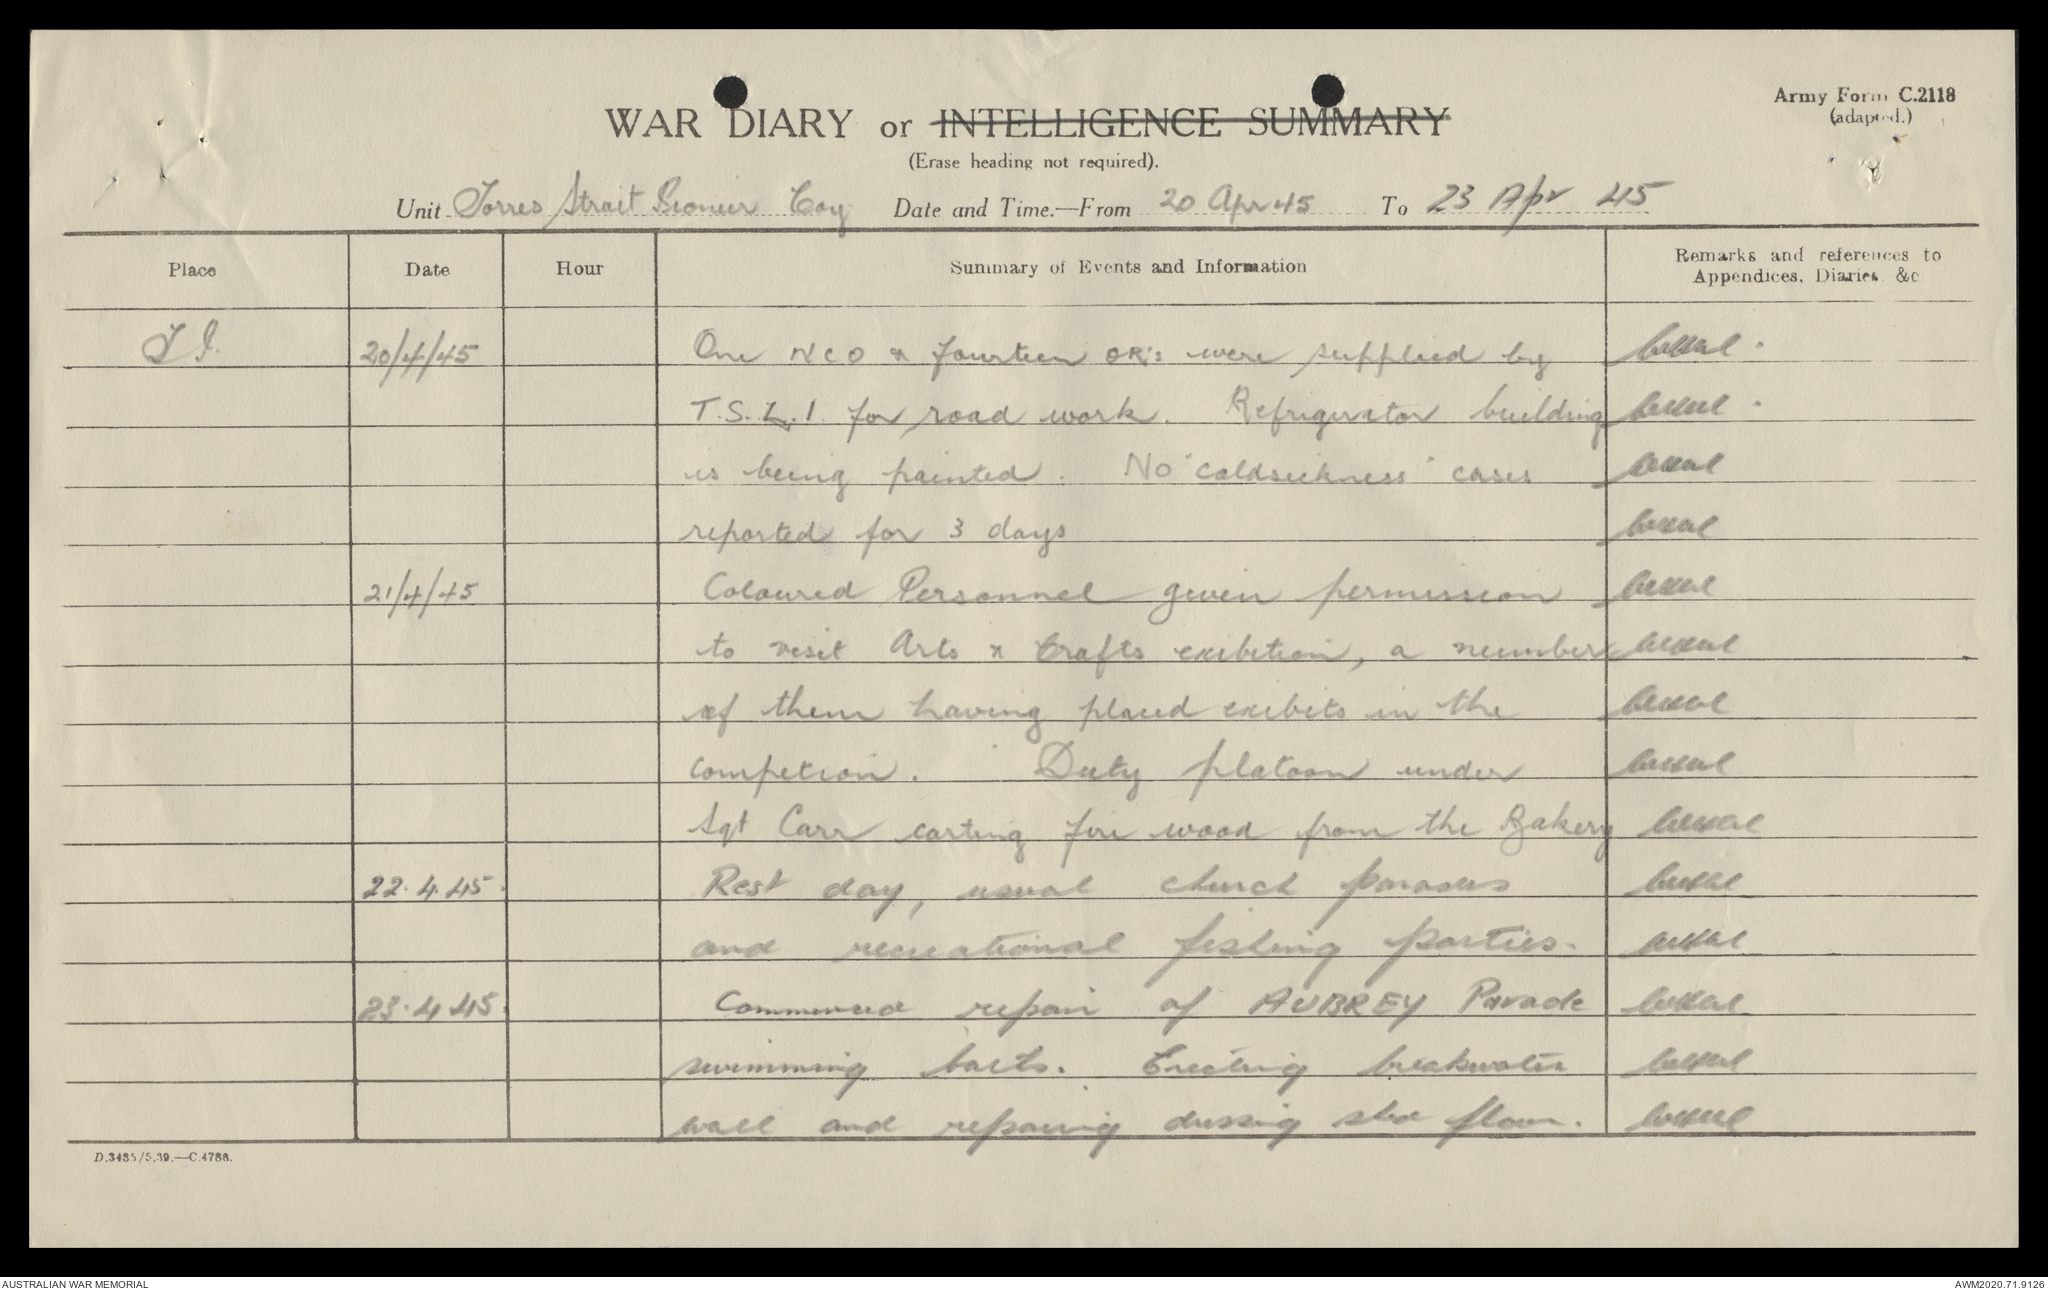 Army Form C.2118
(adapted.)
WAR DIARY or INTELLIGENCE SUMMARY
(Erase heading not required).
Unit Torres Strait Pioneer Coy Date and Time.—From 20 Apr 45 To 23 Apr 45
Place Date Hour Summary of Events and Information Remarks and references to Appendices, Diaries &c
T I. 20/4/45 One NCO & fourteen OR's were supplied by
T.S.L.I. for road work. Refrigerator building
is being painted. No "coldsickness" cases
reported for 3 days
21/4/45 Coloured Personnel given permission
to visit Arts & Crafts exibition, a number
of them having placed exibits in the
competion. Duty platoon under
Sgt Carr carting fire wood from the Bakery
22.4.45. Rest day, usual church parades
and recreational fishing parties.
23.4.45. Commenced repair of AUBREY Parade
swimming baths. Erecting breakwater
wall and repairing dressing shed floor.
D.3485/5.39.—C.4788.
AUSTRALIAN WAR MEMORIAL
AWM2020.71.9126